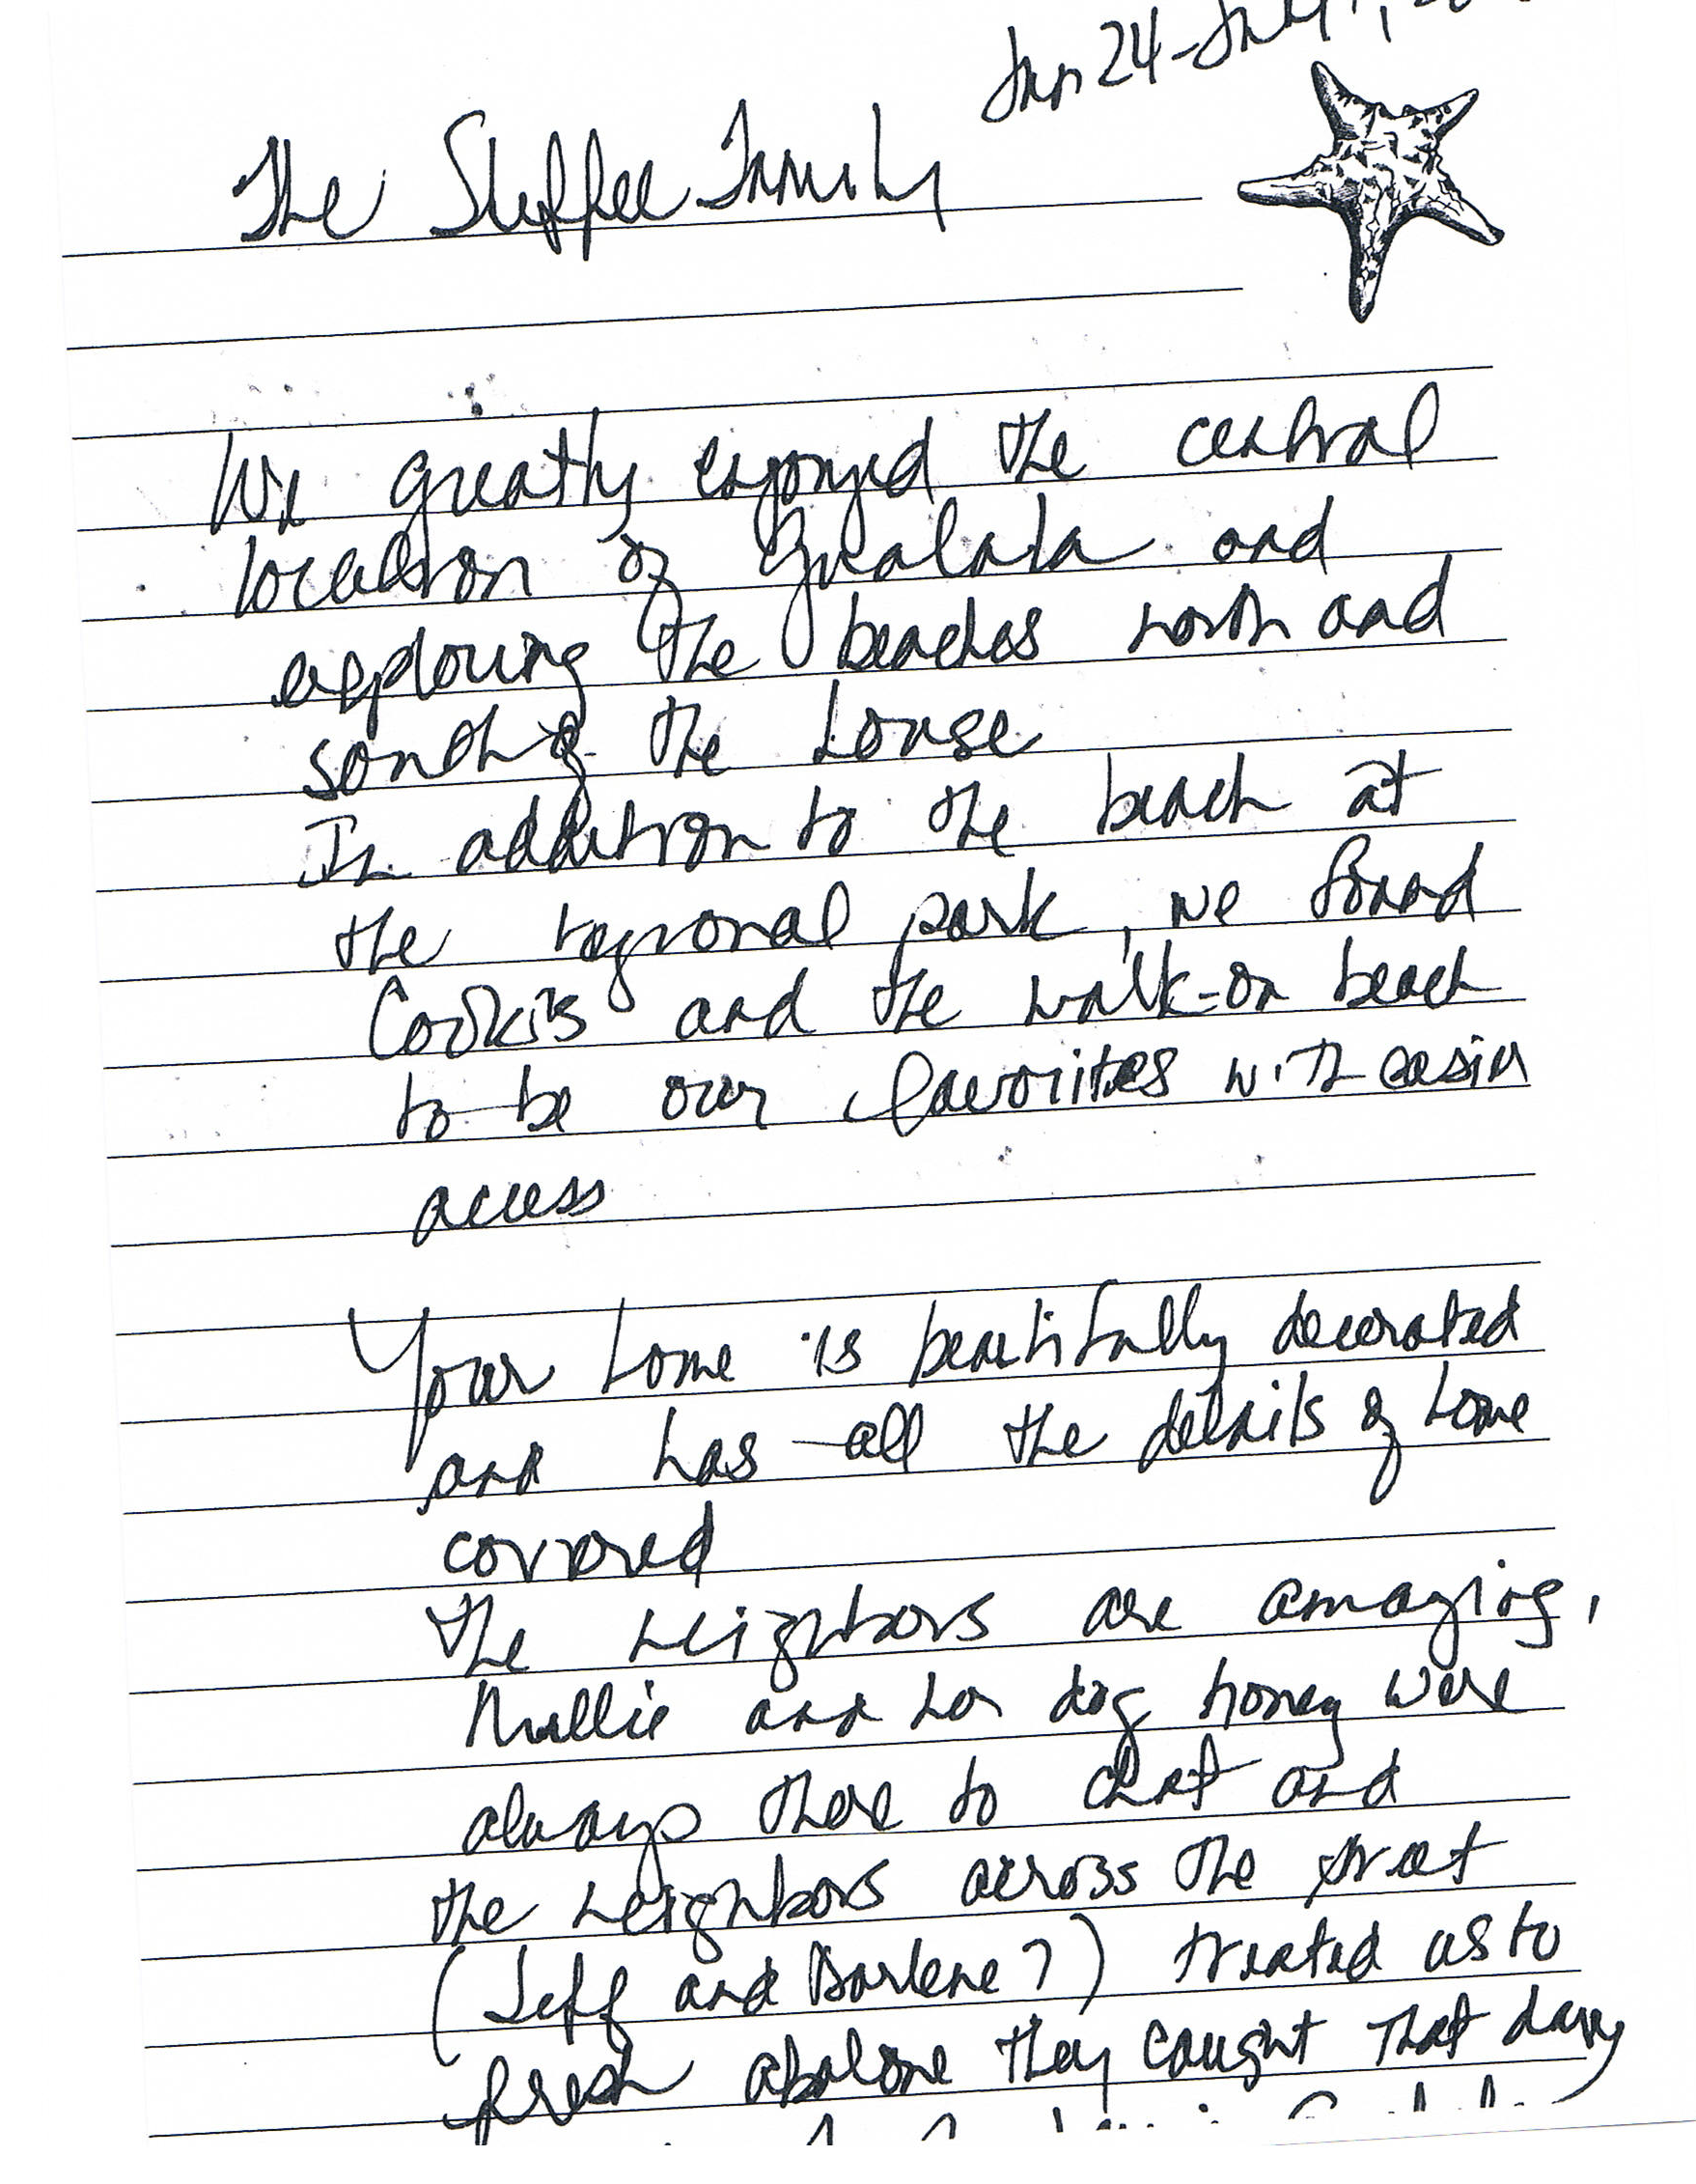 Jun 24-
The Steffee Family
We greatly enjoyed the central
location of Gualala and
exploring the beaches north and
south of the house
In addition to the beach at
the regional park, we found
Cook's and the walk-on beach
to be our favoriites with easier
access
Your home is beautifully decorated
and has all the details of home
covered
The neighbors are amazing,
Mollie and her dog honey were
always there to chat and
the neighbors across the street
(Jeff and Darlene?) treated us to
fresh abalone they caught that day